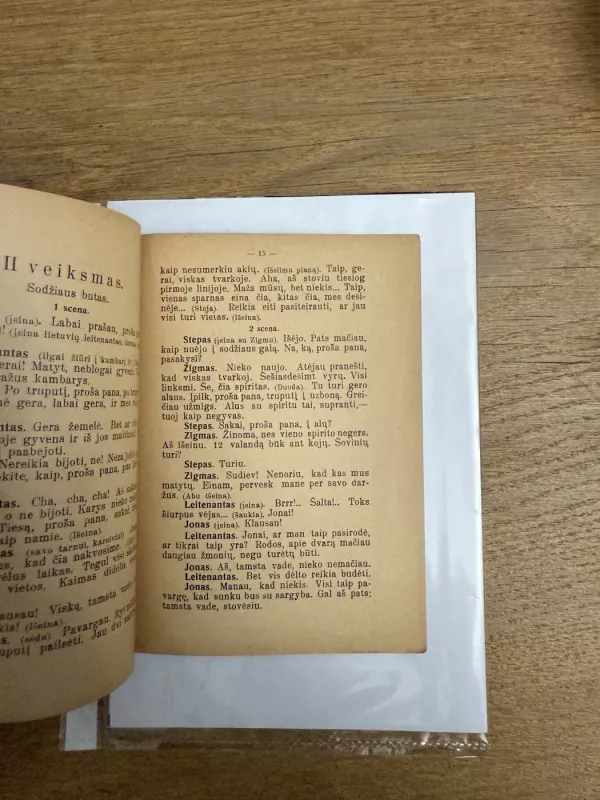 II veiksmas.
Sodžiaus butas.
1 scena.
(įeina). Labai prašau, proša
(Įeina lietuvių leitenantas,
(Ilgai žiūri į kambarį, ir
Matyt, neblogai gyvena.
kambarys.
Po truputį, proša pana, po
gera, labai gera, ir mes
Gera žemelė. Bet ar
gyvena ir iš jos
paabejoti.
Nereikia bijoti, ne! Nėra
kaip, proša pana, pas
Cha, cha, cha! Aš
o ne bijoti. Karys nieko
Tiesą, proša pana, sakai
namie. (Išeina).
(savo tarnui, kareiviui)
kad čia nakvosime.
laikas. Tegul visi
vietos. Kaimas didelis
Viską, tamsta
(Išeina).
(sėda). Pavargau.
pailsėti. Jau dvi
— 15 —
kaip nesumerkiu akių. (Išelima planą). Taip, ge-
rai, viskas tvarkoje. Aha, aš stoviu tiesiog
pirmoje linijoje. Maža mūsų, bet niekis... Taip,
vienas sparnas eina čia, kitas čia, mes deši-
nėje... (Stoja). Reikia eiti pasiteirauti, ar jau
visi turi vietas. (Išeina).
2 scena.
Stepas (įeina su Zigmu). Išėjo. Pats mačiau,
kaip nuėjo į sodžiaus galą. Na, ką, proša pana,
pasakysi?
Zigmas. Nieko naujo. Atėjau pranešti,
kad viskas tvarkoj. Šešiasdešimt vyrų. Visi
linksmi. Še, čia spiritas. (Duoda). Tu turi gero
alaus. Įpilk, proša pana, truputį į uzboną. Grei-
čiau užmigs. Alus su spiritu tai, supranti,—
tuoj kaip negyvas.
Stepas. Sakai, proša pana, į alų?
Zigmas. Žinoma, nes vieno spirito negers.
Aš išeinu. 12 valandą būk ant kojų. Šovinių
turi?
Stepas. Turiu.
Zigmas. Sudiev! Nenoriu, kad kas mus
matytų. Einam, pervesk mane per savo dar-
žus. (Abu išeina).
Leitenantas (įeina). Brrr!.. Šalta!.. Toks
šiurpus vėjas... (šaukia). Jonai!
Jonas (įeina). Klausau!
Leitenantas. Jonai, ar man taip pasirodė,
ar tikrai taip yra? Rodos, apie dvarą mačiau
daugiau žmonių, negu turėtų būti.
Jonas. Aš, tamsta vade, nieko nemačiau.
Leitenantas. Bet vis dėlto reikia budėti.
Jonas. Manau, kad niekis. Visi taip pa-
vargę, kad sunku bus su sargyba. Gal aš pats;
tamsta vade, stovėsiu.